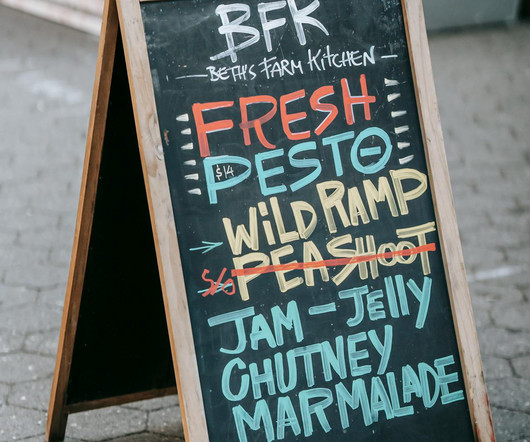 BFK
BETH'S FARM KITCHEN
FRESH
$14
PESTO
WILD RAMP
S/O PEASHOOT
JAM - JELLY
CHUTNEY
MARMALADE